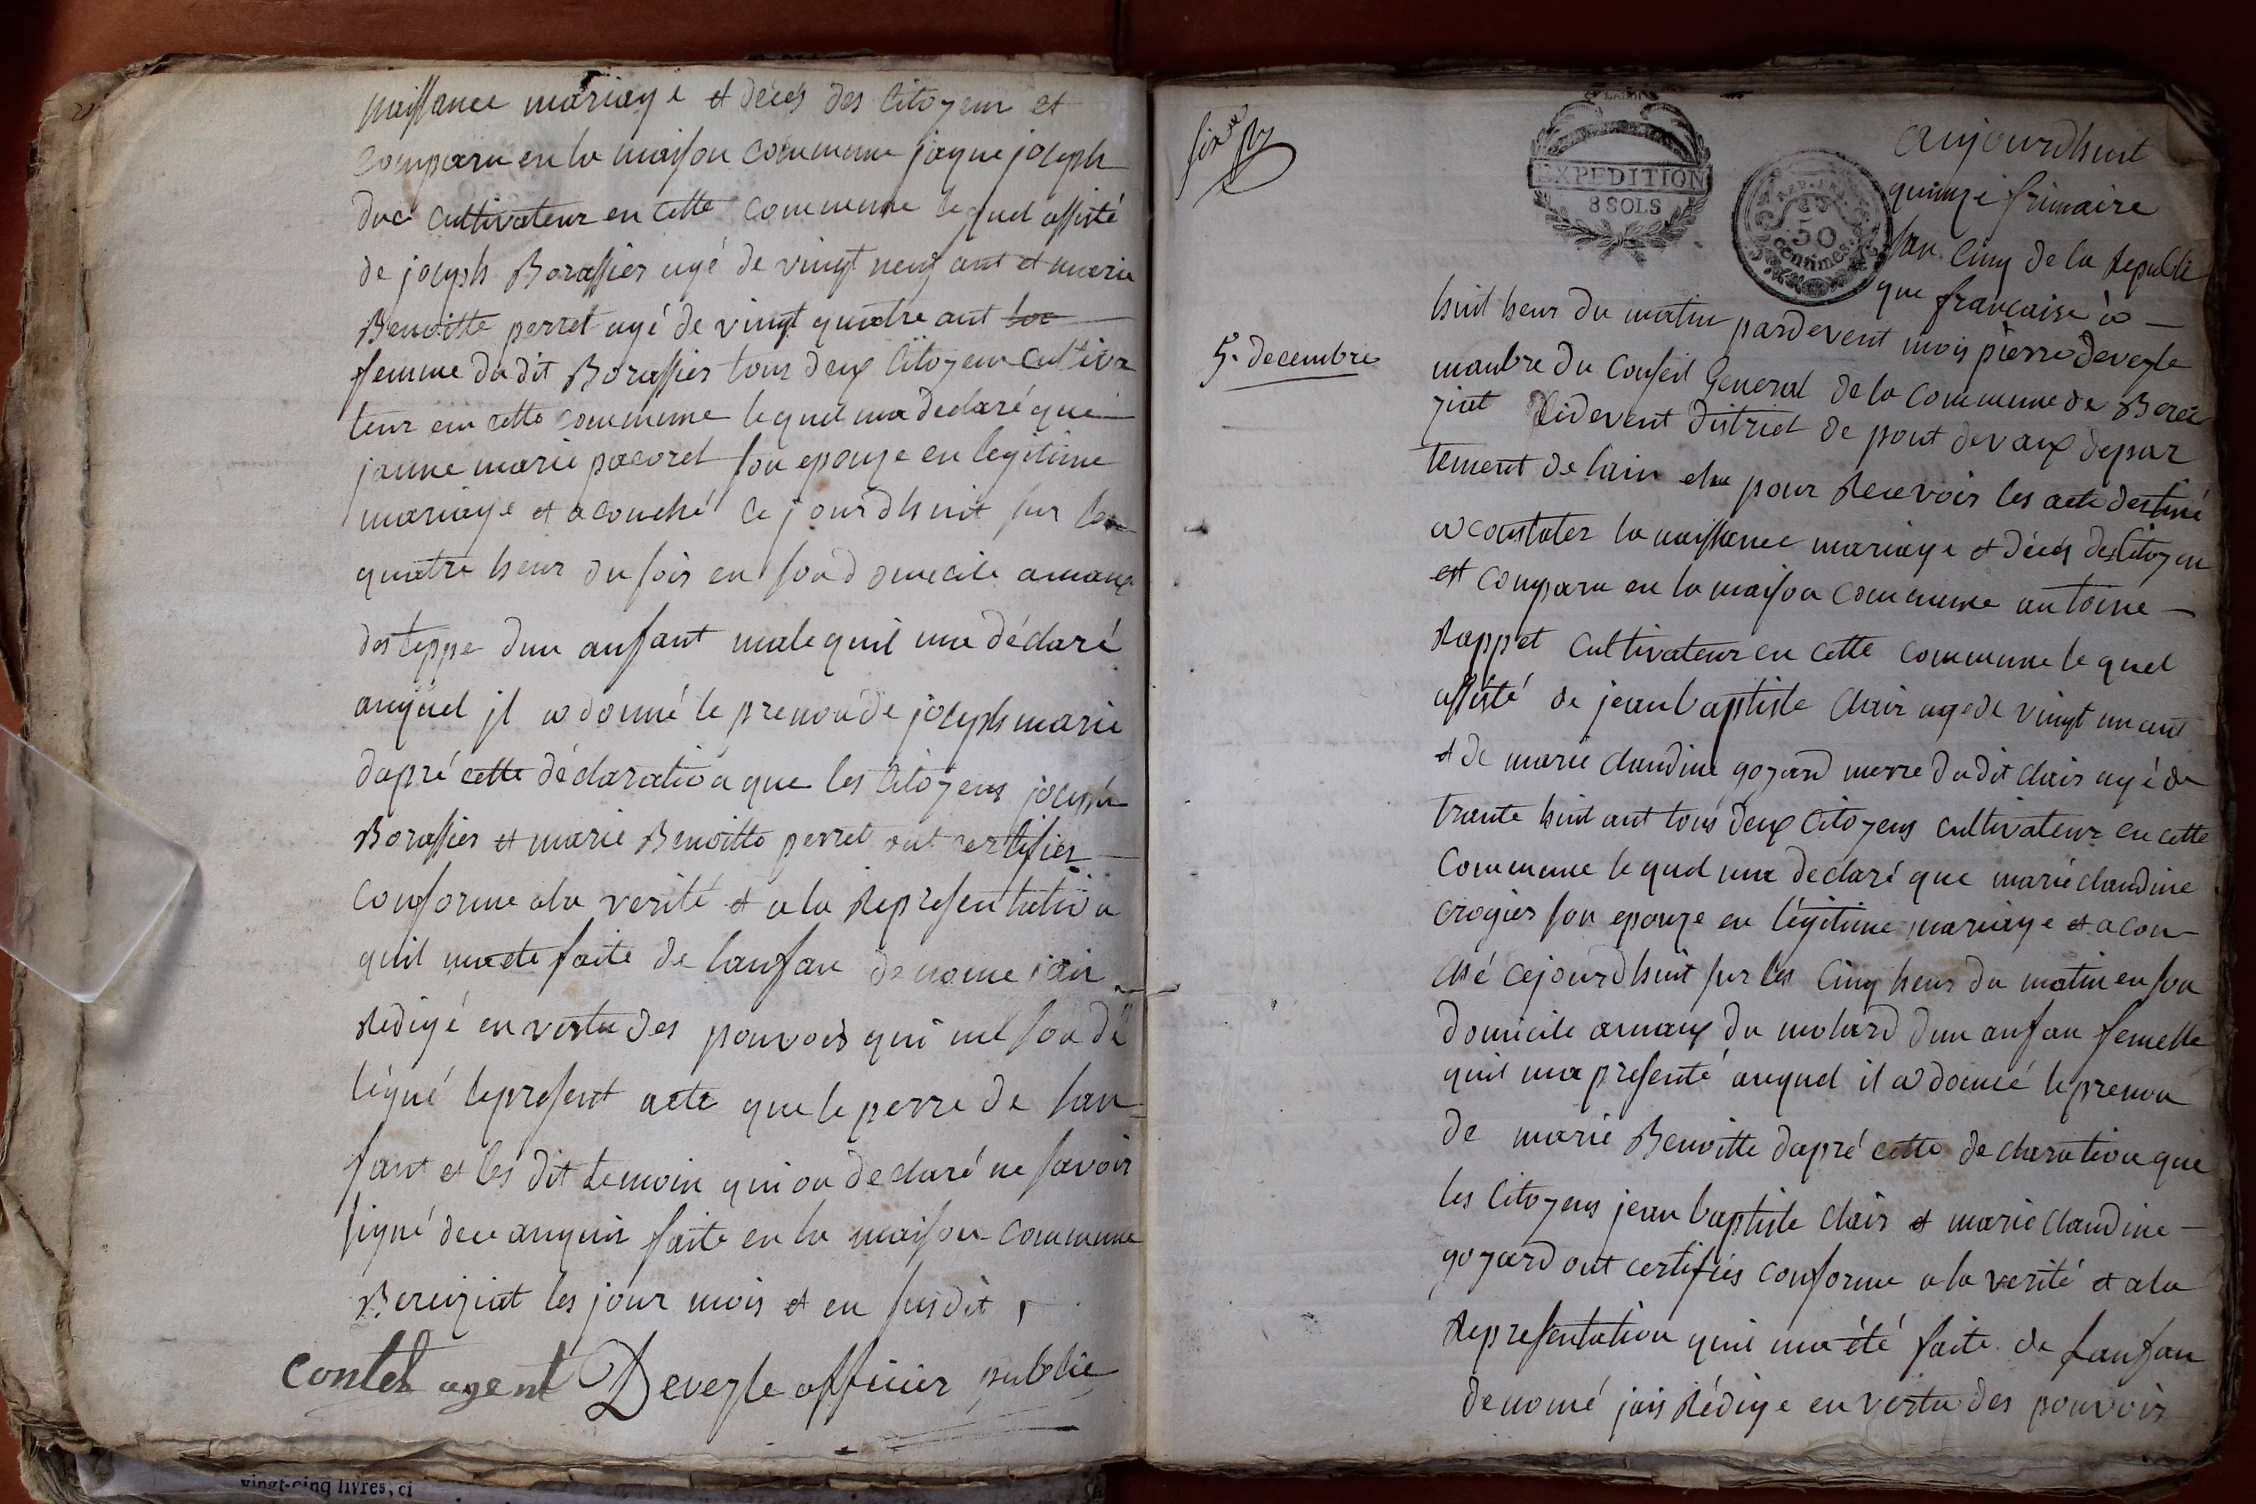 naissance mariage et deces des Citoyen et
comparu en la maison commune jaque joseph
duc cultivateur en cette commune le quel assisté
de joseph Borassier agé de vingt neuf ant et marie
Benoitte perret agé de vingt quatre ant
femme du dit Borassier tous deux Citoyen cultiva
teur en cette commune le quel ma declaré que
janne marie pacoret son epouze en legitime
mariage et acouché ce jourdhuit sur les
quatre heur du soir en son domicile amaux
dosteppe dun anfant male quil ma déclaré
auquel jl a donné le prenon de joseph marie
dapré cette déclaration que les Citoyens joseph
Borassier et marie Benoitte perret ont certifier
conforme ala verité et ala Representation
quil ma ete faite de lanfan denome jai
Rédigé en vertu des pouvoirs qui me son dé
légué le present acte que le perre de lan
fant et les dit temoin qui on declaré ne savoir
signé de ce anquir faite en la maison commune
Bereiziat les jour mois et en susdit
contet agent Deveyle officier public
EXPEDITION
8 SOLS
REP. FRA.
50
centimes
aujourdhuit
quinze frimaire
lan Cinq de la Republi
que francaise à
huit heur du matin pardevent mois pierre deveyle
5. decembre
manbre du Conseil General de la commune de Berei
ziat Cidevent district de pont devaux depar
tement de lain elu pour Recevoir les acte destiné
a constater la naissance mariage et décés des Citoyen
est comparu en la maison commune antoine
Rappet cultivateur en cette commune le quel
assisté de jean baptiste Clair age de vingt un ant
et de marie claudine gozard merre du dit clair agé de
trante huit ant tous deux Citoyens cultivateur en cette
commune le quel ma declaré que marie claudine
crozier son epouze en légitime mariage et acou
ché cejourdhuit sur les Cinq heur du matin en son
domicile amaux du molard dun anfan femelle
quil ma presenté auquel il a donné le prenon
de marie Benoitte dapré cette declaration que
les Citoyens jean baptiste Clair et marie claudine
gozard ont certifiés conforme ala verité et ala
Representation quil ma été faite de lanfan
denomé jais Rédige en vertu des pouvoir
vingt-cinq livres, ci